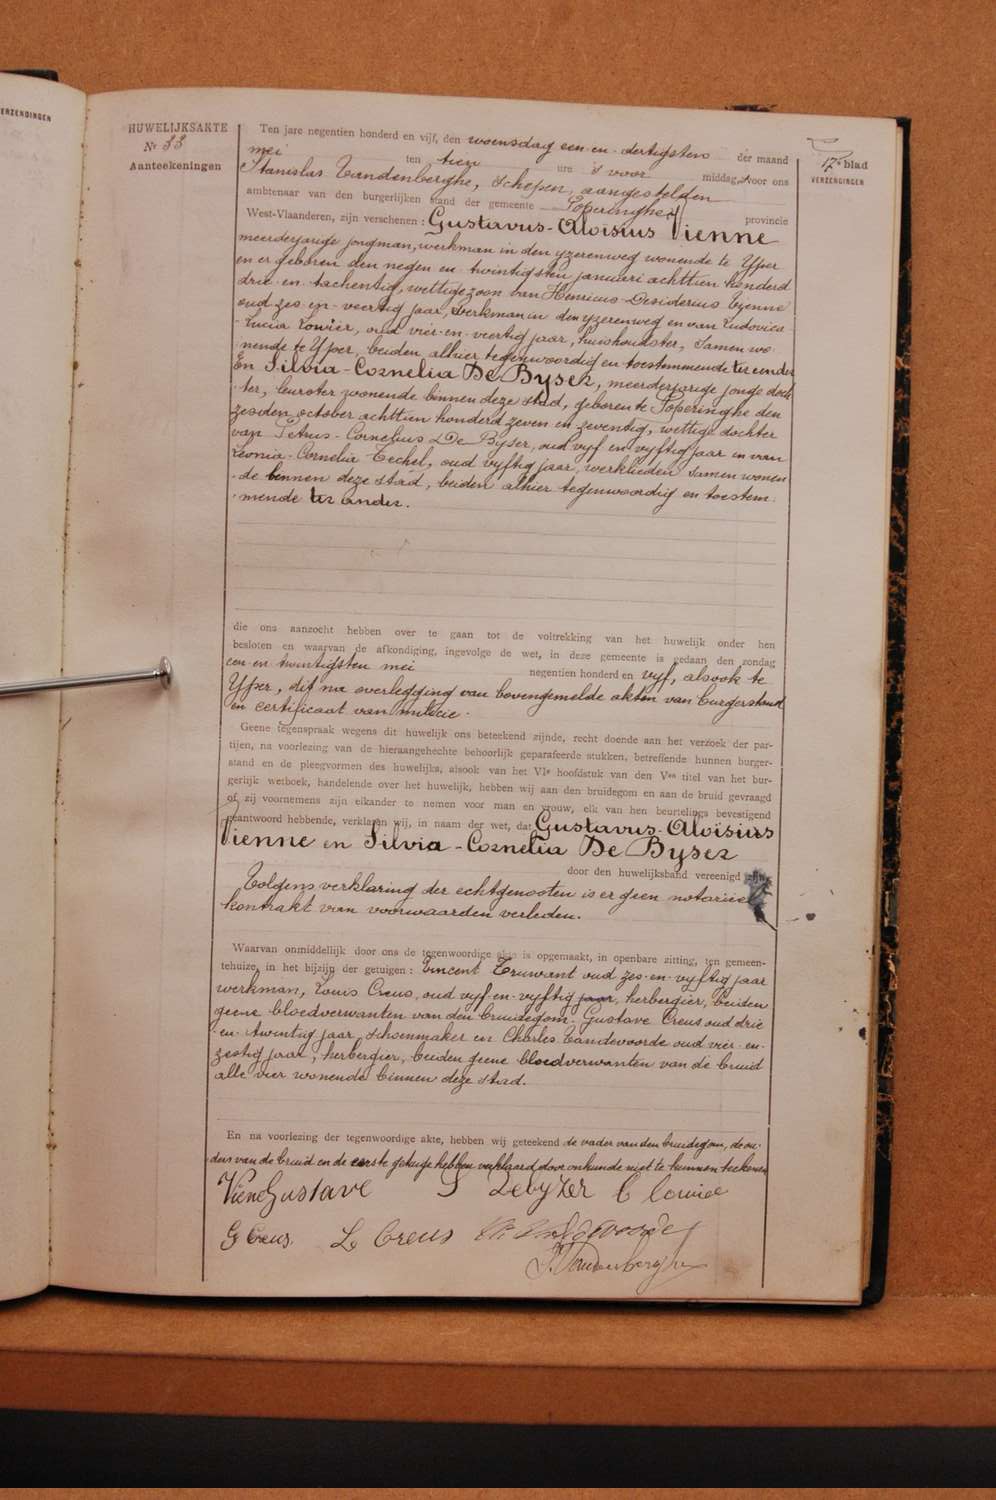 ERZENDINGEN
HUWELIJKSAKTE
Nr 33
Aanteekeningen
17e blad
VERZENDINGEN
Ten jare negentien honderd en vijf, den woensdag een en dertigsten der maand
mei ten tien ure 's voor middag, voor ons
Stanislas Vandenberghe, schepen, aangestelden
ambtenaar van den burgerlijken stand der gemeente Poperinghe, provincie
West-Vlaanderen, zijn verschenen: Gustavus-Aloïsius Vienne
meerderjarige jongman, werkman in den yzerenweg wonende te Yper
en er geboren den negen en twintigsten januari achttien honderd
drie-en-tachentig, wettige zoon van Henricus-Desiderius Vienne
oud zes-en-veertig jaar, werkman in den yzerenweg en van Ludovica
-Lucia Lowier, oud vier-en-veertig jaar, huishoudster, samen wo-
nende te Yper, beiden alhier tegenwoordig en toestemmende ter eender
En Silvia-Cornelia De Byser, meerderjarige jonge doch
-ter, leurster woonende binnen deze stad, geboren te Poperinghe den
zesden october achttien honderd zeven en zeventig, wettige dochter
van Petrus-Cornelius De Byser, oud vyf en vyftig jaar en van
Leonia-Cornelia Techel, oud vyftig jaar, werklieden samen wonen
-de binnen deze stad, beiden alhier tegenwoordig en toestem-
-mende ter ander.
die ons aanzocht hebben over te gaan tot de voltrekking van het huwelijk onder hen
besloten en waarvan de afkondiging, ingevolge de wet, in deze gemeente is gedaan den zondag
een en twintigsten mei negentien honderd en vyf, alsook te
Yper, dit na overlegging van bovengemelde akten van burgerstand
en certificaat van milicie.
Geene tegenspraak wegens dit huwelijk ons beteekend zijnde, recht doende aan het verzoek der par-
tijen, na voorlezing van de hieraangehechte behoorlijk geparafeerde stukken, betreffende hunnen burger-
stand en de pleegvormen des huwelijks, alsook van het VIe hoofdstuk van den Ven titel van het bur-
gerlijk wetboek, handelende over het huwelijk, hebben wij aan den bruidegom en aan de bruid gevraagd
of zij voornemens zijn elkander te nemen voor man en vrouw, elk van hen beurtelings bevestigend
geantwoord hebbende, verklaren wij, in naam der wet, dat Gustavus-Aloïsius
Vienne en Silvia-Cornelia De Byser
door den huwelijksband vereenigd zijn.
Volgens verklaring der echtgenooten is er geen notarieel
kontrakt van voorwaarden verleden.
Waarvan onmiddellijk door ons de tegenwoordige akte is opgemaakt, in openbare zitting, ten gemeen-
tehuize, in het bijzijn der getuigen: Vincent Truwant oud zes-en-vyftig jaar
werkman, Louis Creus, oud vyf-en-vyftig jaar, herbergier, beiden
geene bloedverwanten van den bruidegom. Gustave Creus oud drie
en-twintig jaar, schoenmaker en Charles Vandevoorde oud vier-en-
zestig jaar, herbergier, beiden geene bloedverwanten van de bruid
alle vier wonende binnen deze stad.
En na voorlezing der tegenwoordige akte, hebben wij geteekend de vader van den bruidegom, de ou-
ders van de bruid en de eerste getuige hebben verklaard door onkunde niet te kunnen teekenen
Vienne Gustave S Debyzer
G Creus. L Creus
S. Vandenberghe